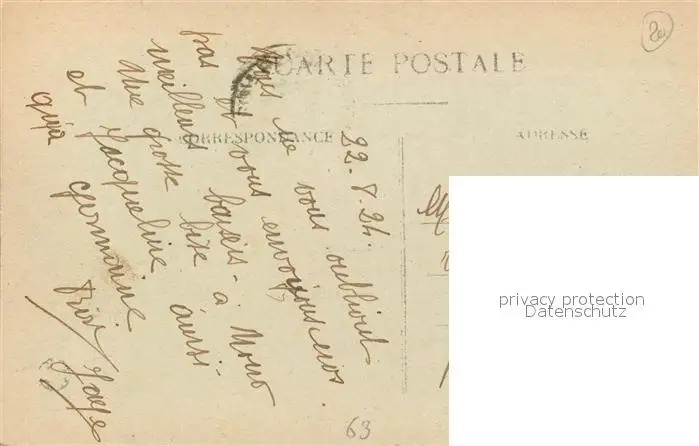 CARTE POSTALE
CORRESPONDANCE
ADRESSE
22.8.24.
Nous ne vous oublions
pas et vous envoyons nos
meilleurs baisers. à Nono
une grosse bise aussi
et Jacqueline
Germaine
privacy protection
Datenschutz
63